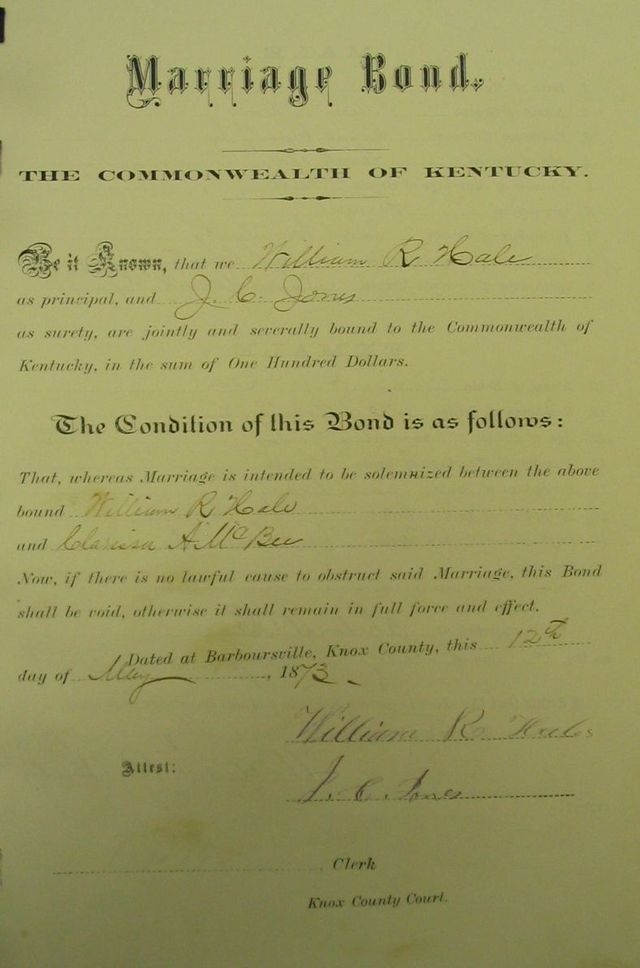 Marriage Bond.
THE COMMONWEALTH OF KENTUCKY.
Be it Known, that we William R. Hale
as principal, and J. C. Jones
as surety, are jointly and severally bound to the Commonwealth of
Kentucky, in the sum of One Hundred Dollars.
The Condition of this Bond is as follows:
That, whereas Marriage is intended to be solemnized between the above
bound William R. Hale
and Clarissa A McBee
Now, if there is no lawful cause to obstruct said Marriage, this Bond
shall be void, otherwise it shall remain in full force and effect.
Dated at Barboursville, Knox County, this 12th
day of May, 1873.
William R
Attest:
J. C. Jones
Clerk
Knox County Court.